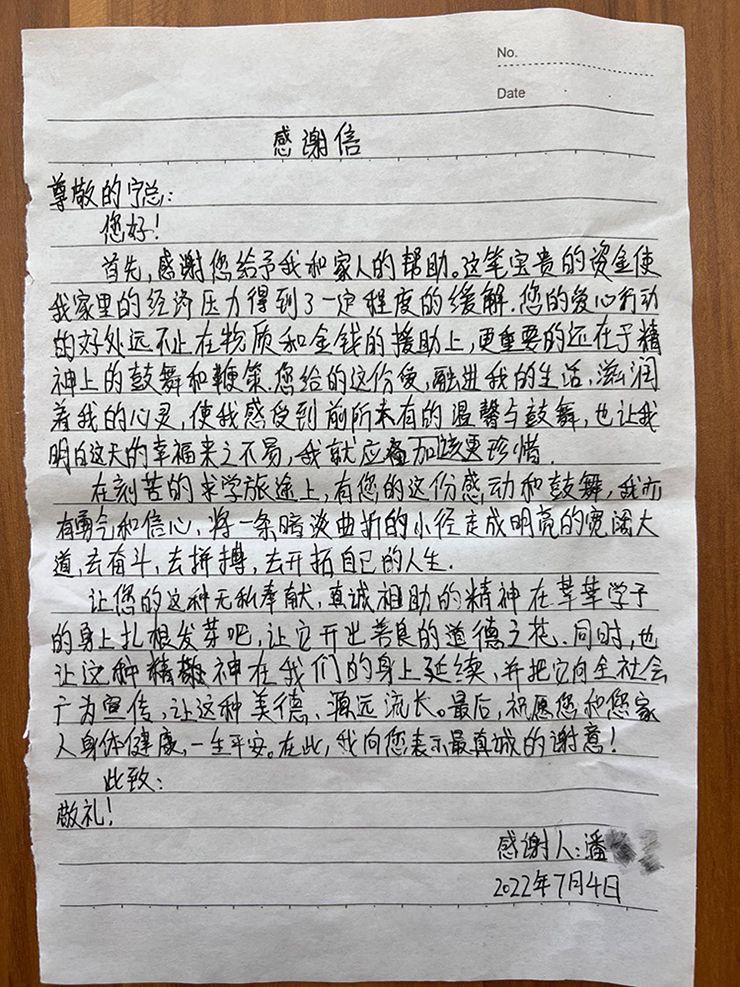 No.
Date
感谢信
尊敬的宁总:
您好!
首先,感谢您给予我和家人的帮助。这笔宝贵的资金使
我家里的经济压力得到了一定程度的缓解.您的爱心行动
的好处远不止在物质和金钱的援助上,更重要的还在于精
神上的鼓舞和鞭策.您给的这份爱,融进我的生活,滋润
着我的心灵,使我感受到前所未有的温馨与鼓舞,也让我
明白这天的幸福来之不易,我就应加该更珍惜.
在刻苦的求学旅途上,有您的这份感动和鼓舞,我亦
有勇气和信心,将一条暗淡曲折的小径走成明亮的宽阔大
道,去奋斗,去拼搏,去开拓自己的人生.
让您的这种无私奉献,真诚相助的精神在莘莘学子
的身上扎根发芽吧,让它开出善良的道德之花.同时,也
让这种精神在我们的身上延续,并把它向全社会
广为宣传,让这种美德、源远流长。最后,祝愿您和您家
人身体健康,一生平安。在此,我向您表示最真诚的谢意!
此致:
敬礼!
感谢人:潘
2022年7月4日